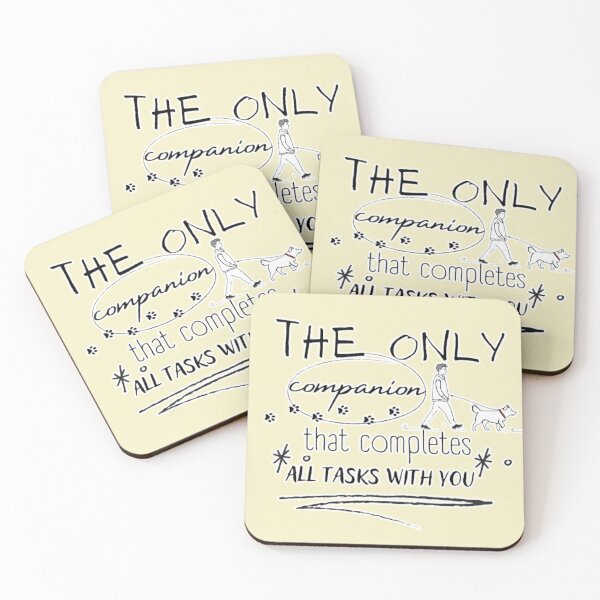 THE ONLY
companion
completes
THE ONLY
companion
that completes
ALL TASKS WITH YOU
THE ONLY
companion
that completes
ALL TASKS WITH
THE ONLY
companion
that completes
*ALL TASKS WITH YOU*